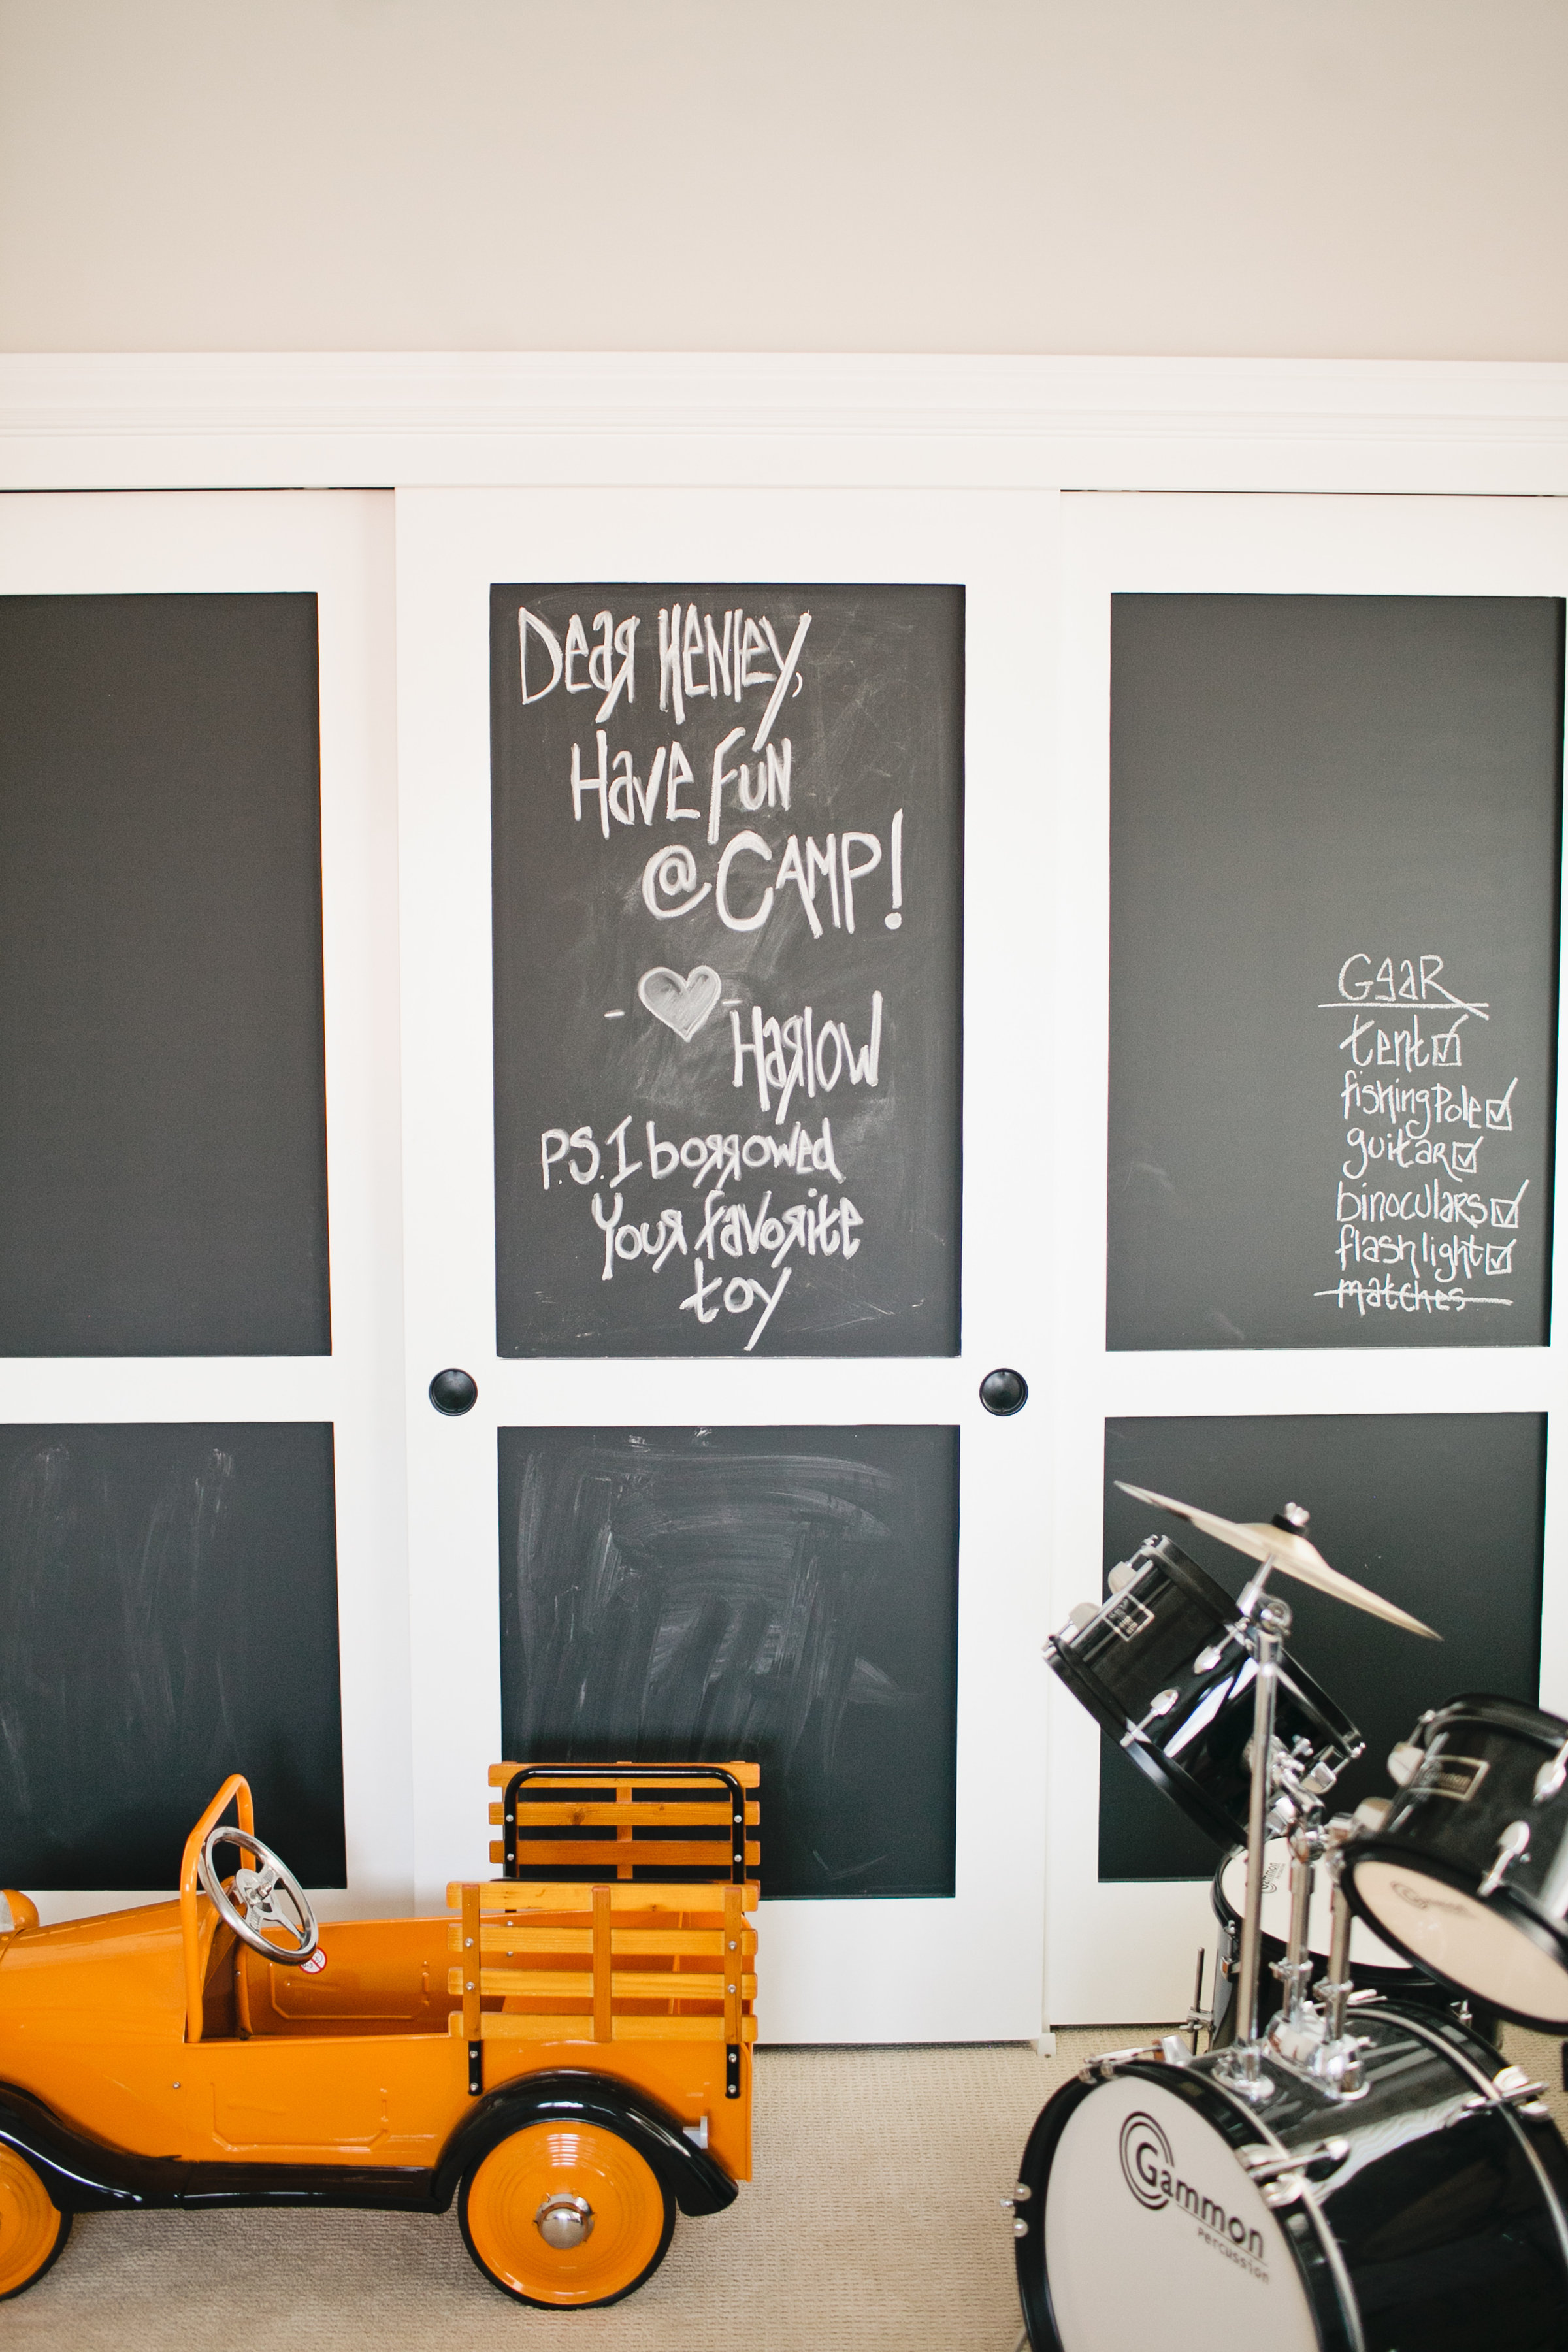 Dear Henley,
Have fun
@ CAMP!
- ♥ -
Harlow
P.S. I borrowed
Your favorite
toy
Gear
tent ☑
fishing Pole ☑
guitar ☑
binoculars ☑
flashlight ☑
matches
Gammon
Percussion